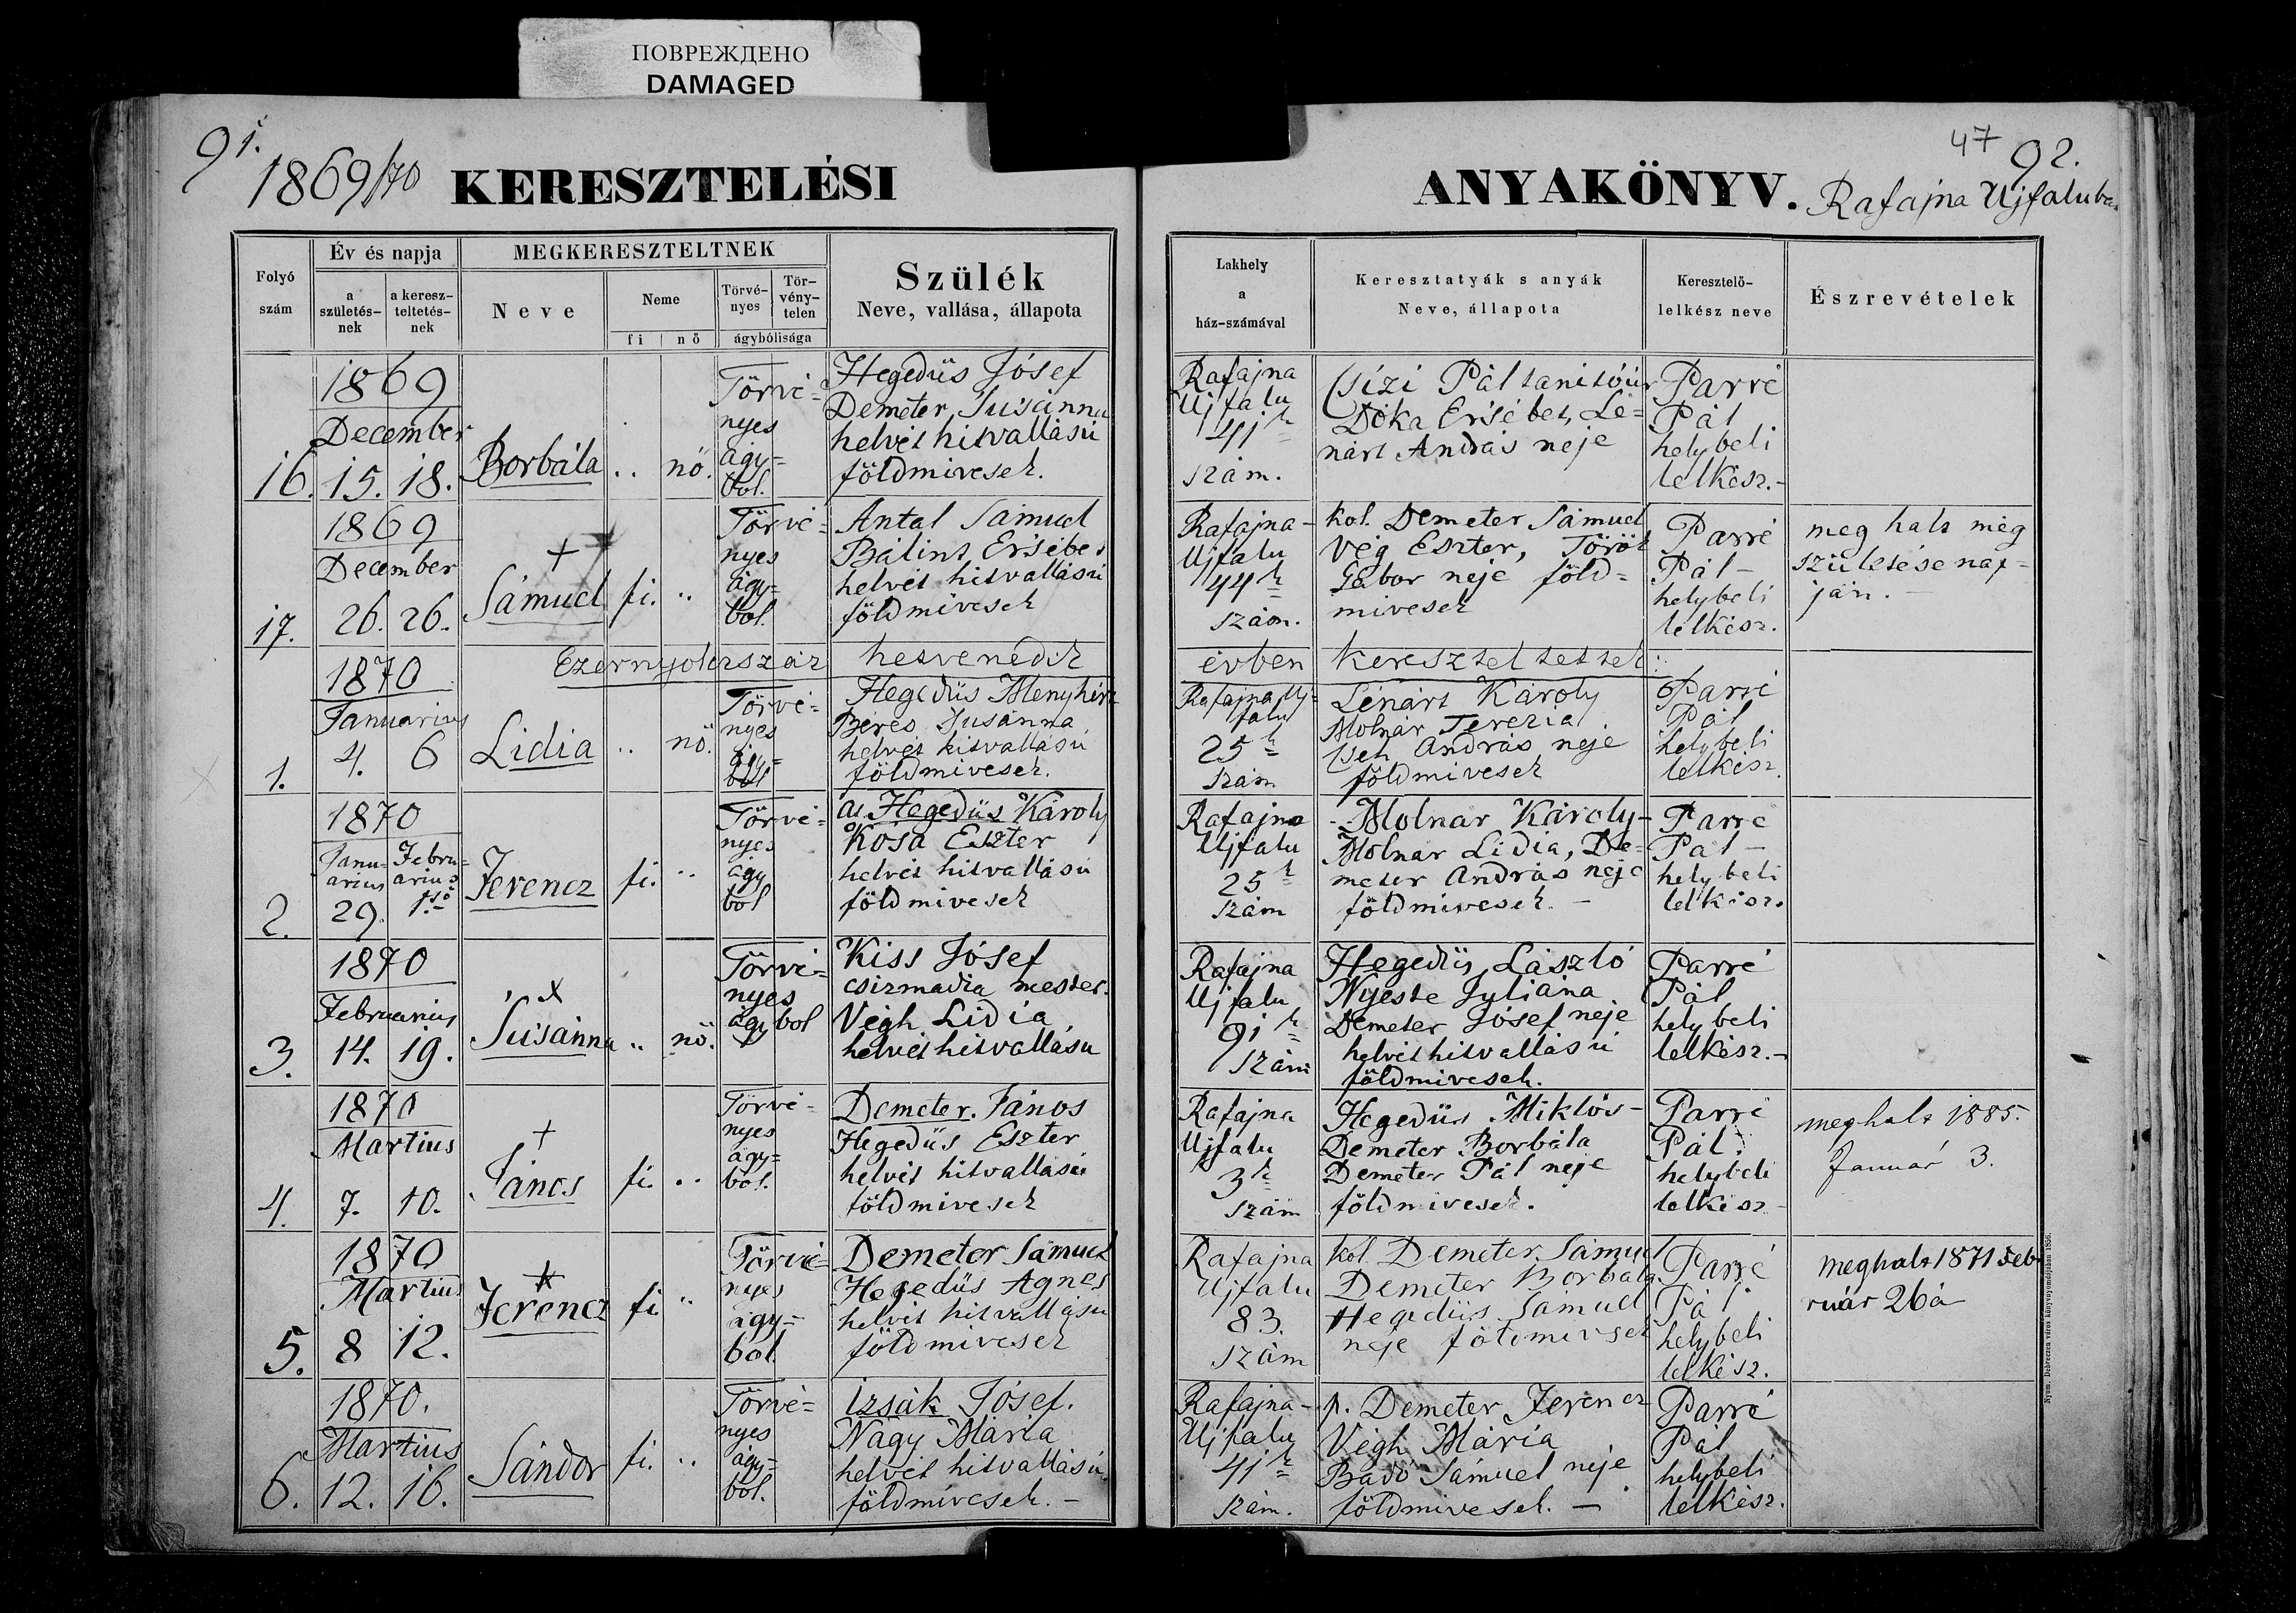 ПОВРЕЖДЕНО
DAMAGED
91.
1869/70
KERESZTELÉSI
Folyó
szám
Év és napja
a
születés-
nek
a keresz-
teltetés-
nek
MEGKERESZTELTNEK
Neve
Neme
fi
nő
Törvé-
nyes
Tör-
vény-
telen
ágybólisága
Szülék
Neve, vallása, állapota
47
92.
ANYAKÖNYV.
Rafajna Ujfaluba
Lakhely
a
ház-számával
Keresztatyák s anyák
Neve, állapota
Keresztelő-
lelkész neve
Észrevételek
1869
December
16. 15. 18.
Borbála
..
nö.
Törvé=
nyes
ágy=
bol.
Hegedüs Jósef
Demeter Susánna
helvét hitvallású
földmivesek.
Rafajna
Ujfalu
41k
szám.
Csizi Pál tanitóúr
Dóka Ersébet, Lé=
nárt András neje
Parré
Pál
helybeli
lelkész.-
1869
December
17. 26. 26.
+
Sámuel
fi.
..
Törvé=
nyes
ágy=
bol.
Antal Sámuel
Bálint Ersébet
helvét hitvallású
földmivesek
Rafajna-
Ujfalu
44k
szám.
kol. Demeter Sámuel
Vég Eszter, Török
Gábor neje föld=
mivesek
Parré
Pál-
helybeli
lelkész.
meg halt még
születése nap=
ján. -
Ezernyolcszáz hetvenedik évben kereszteltettek:
1870
Januarius
1. 4. 6
Lidia
..
nö.
Törvé=
nyes
ágy=
ból
Hegedüs Menyhért
Béres Susánna
helvét hitvallású
földmivesek.
Rafajna Uj=
falu
25k
szám
Lénárt Károly
Molnár Terezia
Cseh András neje
földmivesek
Parré
Pál
helybeli
lelkész.
1870
Janu-
arius
Febru=
arius
2. 29. 1ső
Ferencz
fi.
..
Törvé=
nyes
ágy
bol
Hegedüs Károly
Kósa Eszter
helvét hitvallású
földmivesek
Rafajna
Ujfalu
25k
szám
Molnar Károly-
Molnar Lidia, De=
meter András neje
földmivesek. -
Parré
Pál-
helybeli
lelkész.
1870
Februarius
3. 14. 19.
x
Susánna
..
nö.
Törvé=
nyes
ágybol
Kiss Jósef
csizmadia mester.
Végh Lidia
helvét hitvallású
Rafajna
Ujfalu
91k
szám
Hegedüs László
Nyeste Juliána
Demeter Jósef neje
helvét hitvallású
földmivesek.
Parré
Pál
helybeli
lelkész.-
1870
Martius
4. 7. 10.
+
János
fi.
..
Törvé=
nyes
ágy=
bol.
Demeter János
Hegedüs Eszter
helvét hitvallású
földmivesek
Rafajna
Ujfalu
3k
szám
Hegedüs Miklós-
Demeter Borbála
Demeter Pál neje
földmivesek.
Parré
Pál.
helybeli
lelkész
meghalt 1885.
Január 3.
1870
Martius
5. 8 12.
Ferencz
fi
..
Törvé=
nyes
ágy=
bol.
Demeter Sámuel
Hegedüs Agnes
helvét hitvallásu
földmivesek
Rafajna
Ujfalu
83.
szám
kol. Demeter Sámuel
Demeter Borbála
Hegedüs Sámuel
neje földmivesek
Parré
Pál
helybeli
lelkész.
meghalt 1871 feb
ruár 26á
1870.
Martius
6. 12. 16.
Sándor
fi.
..
Törvé=
nyes
ágy=
ból.
Izsák Jósef.
Nagy Mária
helvét hitvallású.
földmivesek. -
Rafajna-
Ujfalu
41k
szám.
p. Demeter Ferencz
Végh Mária
Badó Sámuel neje
földmivesek. -
Parré
Pál
helybeli
lelkész.
Nyom. Debreczen város könyvnyomdájában 1856.